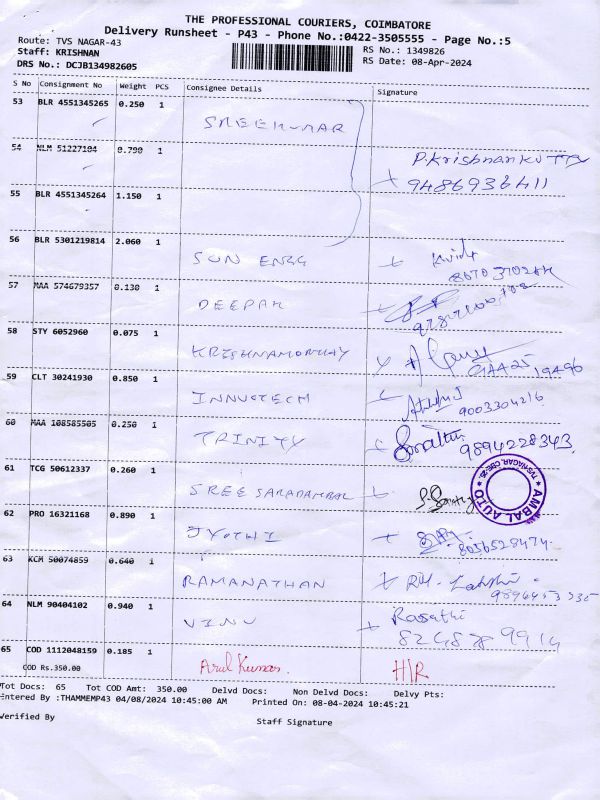 THE PROFESSIONAL COURIERS, COIMBATORE
Delivery Runsheet - P43 - Phone No.:0422-3505555 - Page No.:5
Route: TVS NAGAR-43
RS No.: 1349826
Staff: KRISHNAN
RS Date: 08-Apr-2024
DRS No.: DCJB134982605
S No Consignment No Weight PCS Consignee Details Signature
53 BLR 4551345265 0.250 1 SREEKUMAR
54 NLM 51227104 0.790 1 P.Krishnankutty
9486936411
55 BLR 4551345264 1.150 1
56 BLR 5301219814 2.060 1 SUN ENGG
57 MAA 574679357 0.130 1 DEEPAK
58 STY 6052960 0.075 1 KRISHNAMORTHY
59 CLT 30241930 0.850 1 INNVOTECH
9003304216
60 MAA 108585505 0.250 1 TRINITY
9894228343
61 TCG 50612337 0.260 1 SREE SARADAMBAL
AMBAL AUTO
TVS NAGAR, CBE-25
62 PRO 16321168 0.890 1 JYOTHI
8056528474
63 KCM 50074859 0.640 1 RAMANATHAN
64 NLM 90404102 0.940 1 VINU Rasathi
65 COD 1112048159 0.185 1 Arul Kumar. H/R
COD Rs.350.00
Tot Docs: 65 Tot COD Amt: 350.00 Delvd Docs: Non Delvd Docs: Delvy Pts:
Entered By :THAMMEMP43 04/08/2024 10:45:00 AM Printed On: 08-04-2024 10:45:21
Verified By
Staff Signature